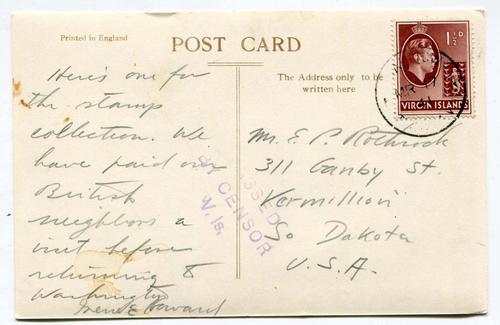 Printed in England
POST CARD
The Address only to be
written here
1½D
VIRGIN ISLANDS
Here's one for
the stamp
collection. We
have paid our
British
neighbors a
visit before
returning to
Washington
Irene E Howard
PASSED
BY CENSOR
V. Is.
Mr. E. P. Rothrock
311 Canby St.
Vermillion
So Dakota
U.S.A.